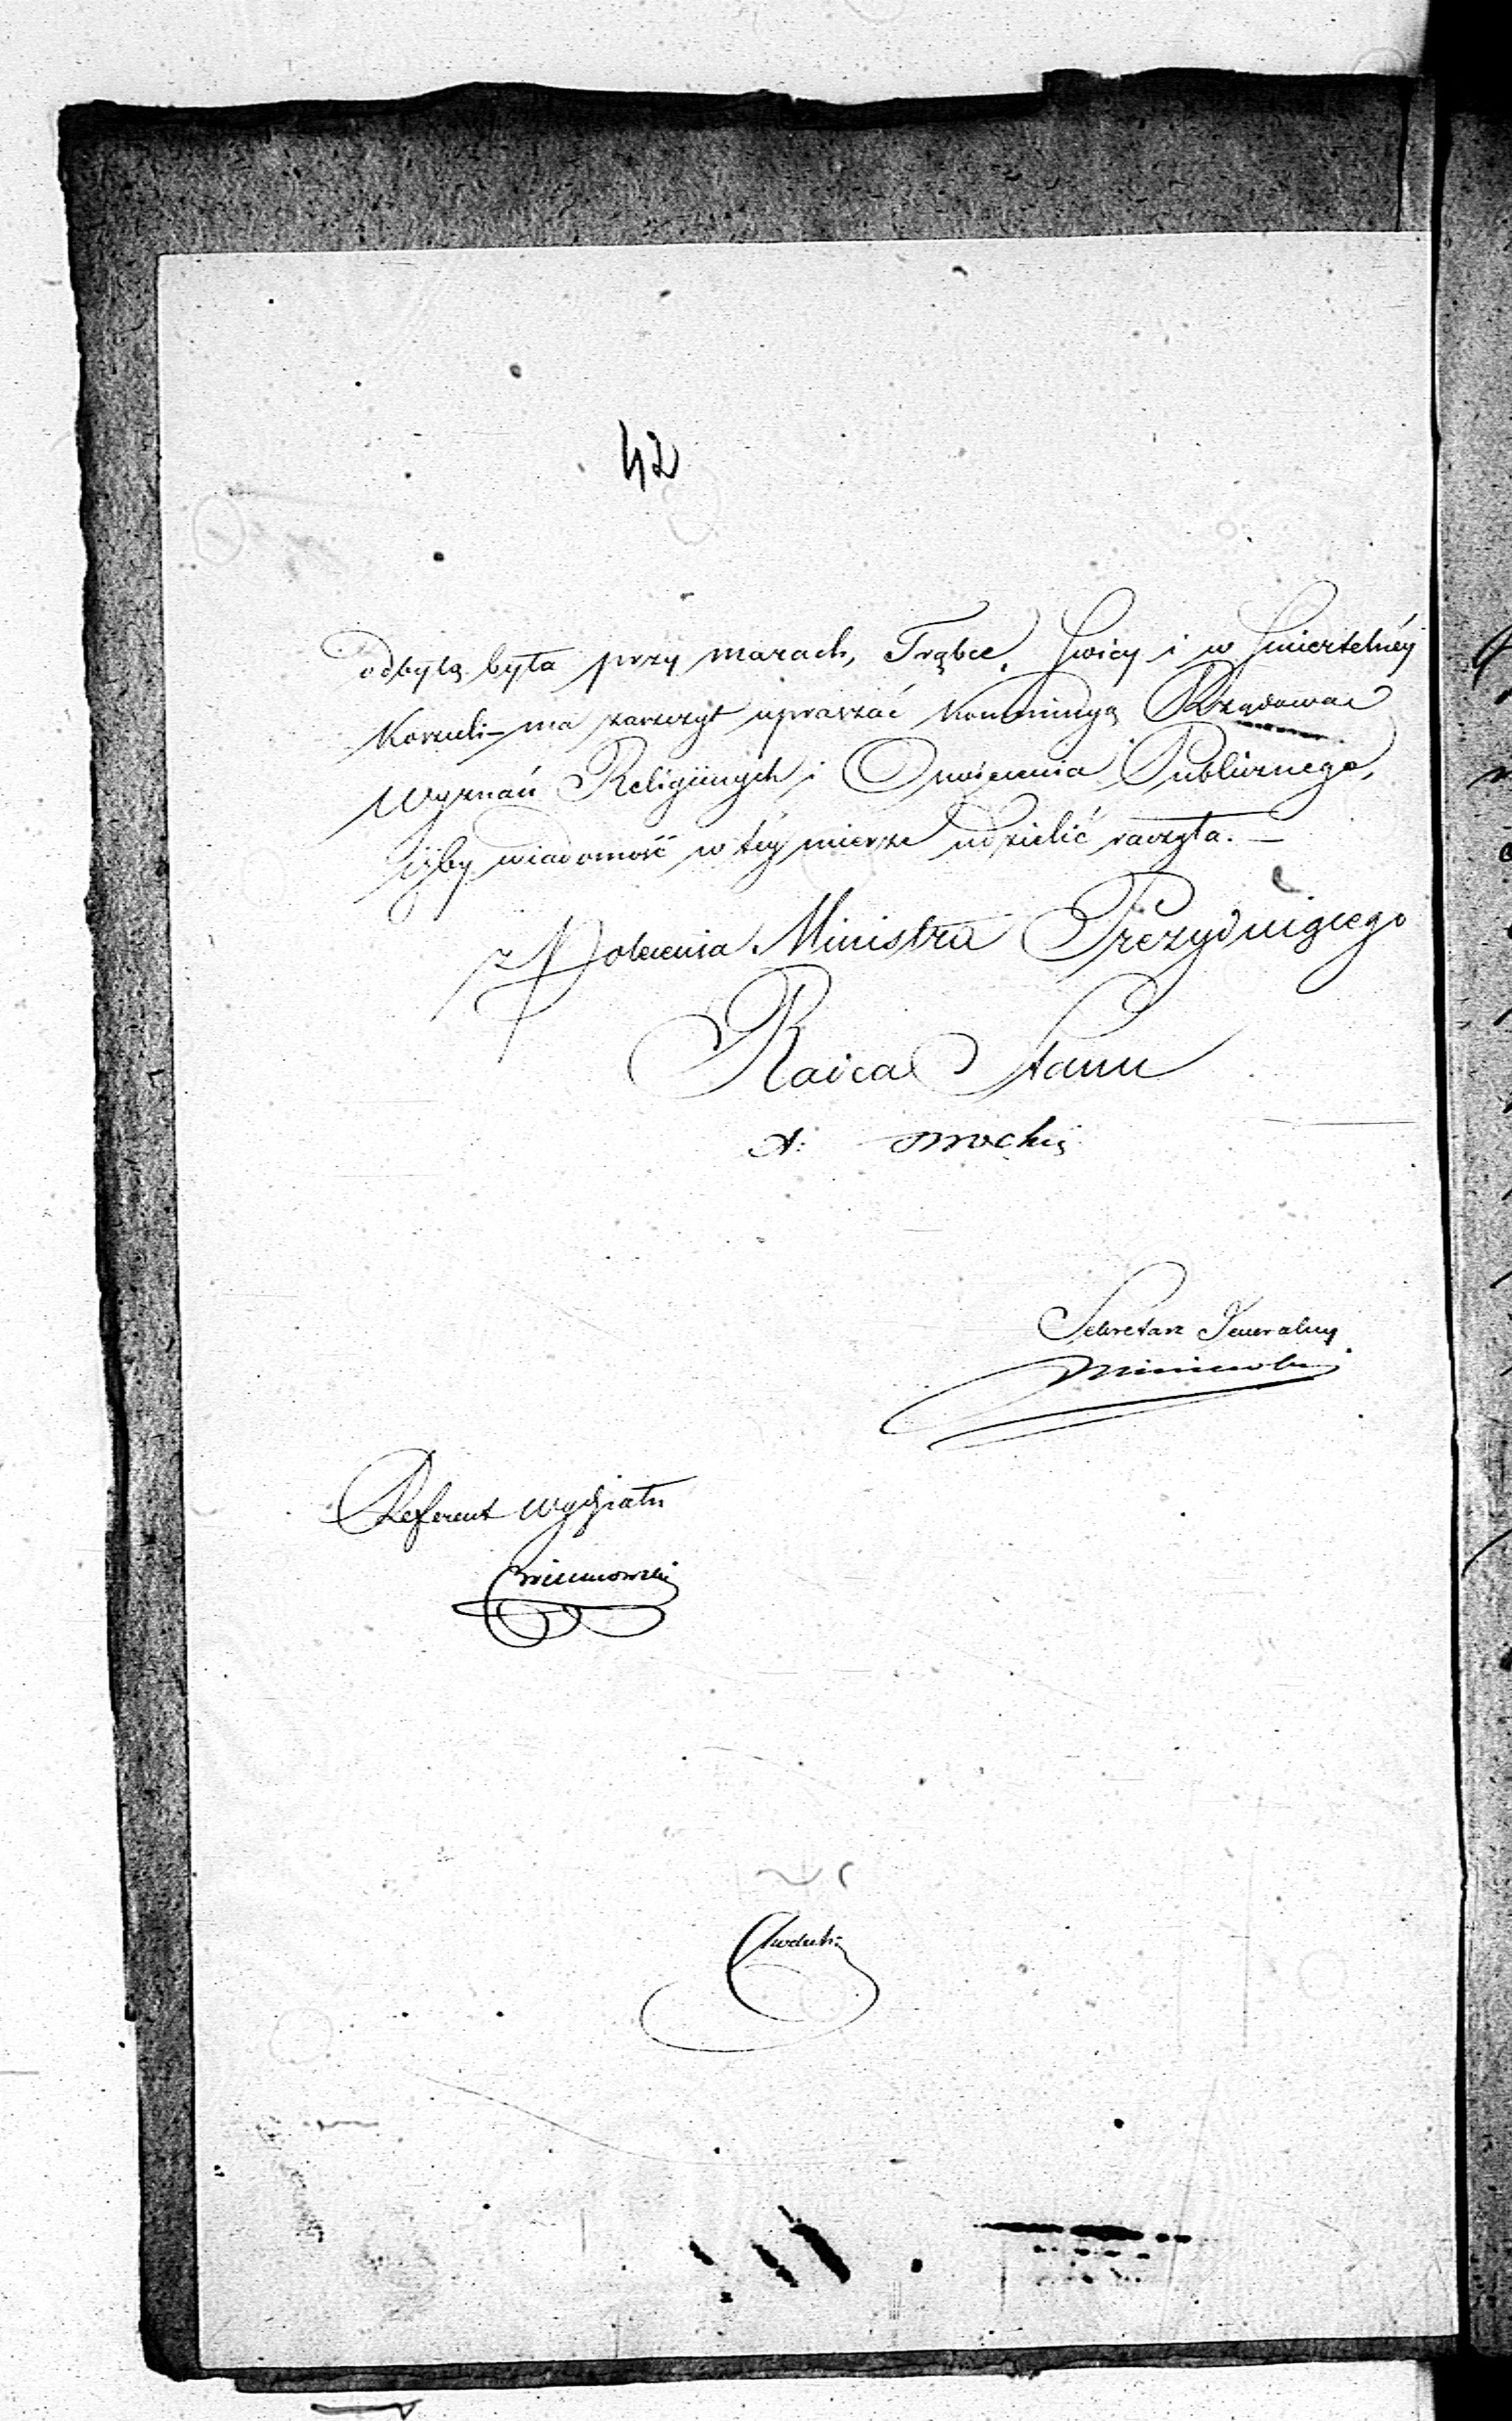 42
odbytą była przy marach, Trąbce, Swicy i w Smiertelnéy
Koszuli – ma zaszczyt upraszać Kommissyą Rządową
Wyznań Religiinych i Oświecenia Publicznego,
iżby wiadomość w téy mierze udzielić raczyła. —
z Polecenia Ministra Prezyduiącego
Radca Stanu
Sekretarz Jeneralny
Referent Wydziału